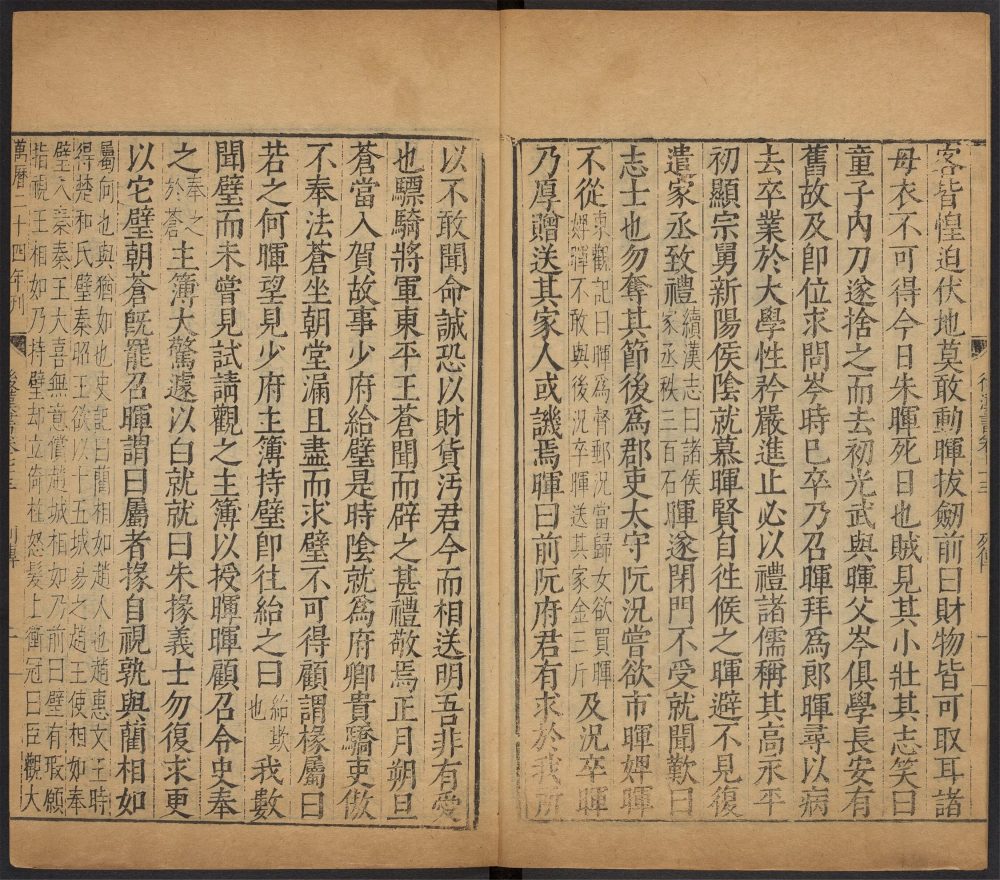 客皆惶迫伏地莫敢動暉拔劒前曰財物皆可取耳諸
母衣不可得今日朱暉死日也賊見其小壯其志笑曰
童子內刀遂捨之而去初光武與暉父岑俱學長安有
舊故及卽位求問岑時已卒乃召暉拜爲郎暉尋以病
去卒業於大學性矜嚴進止必以禮諸儒稱其高永平
初顯宗舅新陽侯陰就慕暉賢自往候之暉避不見復
遣家丞致禮續漢志曰諸侯家丞秩三百石暉遂閉門不受就聞歎曰
志士也勿奪其節後爲郡吏太守阮況嘗欲市暉婢暉
不從東觀記曰暉爲督郵況當歸女欲買暉婢暉不敢與後況卒暉送其家金三斤及況卒暉
乃厚贈送其家人或譏焉暉曰前阮府君有求於我所
後漢書卷七十三 列傳 一
以不敢聞命誠恐以財貨汚君今而相送明吾非有愛
也驃騎將軍東平王蒼聞而辟之甚禮敬焉正月朔旦
蒼當入賀故事少府給璧是時陰就爲府卿貴驕吏傲
不奉法蒼坐朝堂漏且盡而求璧不可得顧謂掾屬曰
若之何暉望見少府主簿持璧卽往紿之曰紿欺也我數
聞璧而未嘗見試請觀之主簿以授暉暉顧召令史奉
之奉之於蒼主簿大驚遽以白就就曰朱掾義士勿復求更
以它璧朝蒼旣罷召暉謂曰屬者掾自視孰與藺相如
屬向也與猶如也史記曰藺相如趙人也趙惠文王時
得楚和氏璧秦昭王欲以十五城易之趙王使相如奉
璧入秦秦王大喜無意償趙城相如乃前曰璧有瑕願
指視王相如乃持璧却立倚柱怒髮上衝冠曰臣觀大
萬曆二十四年刊